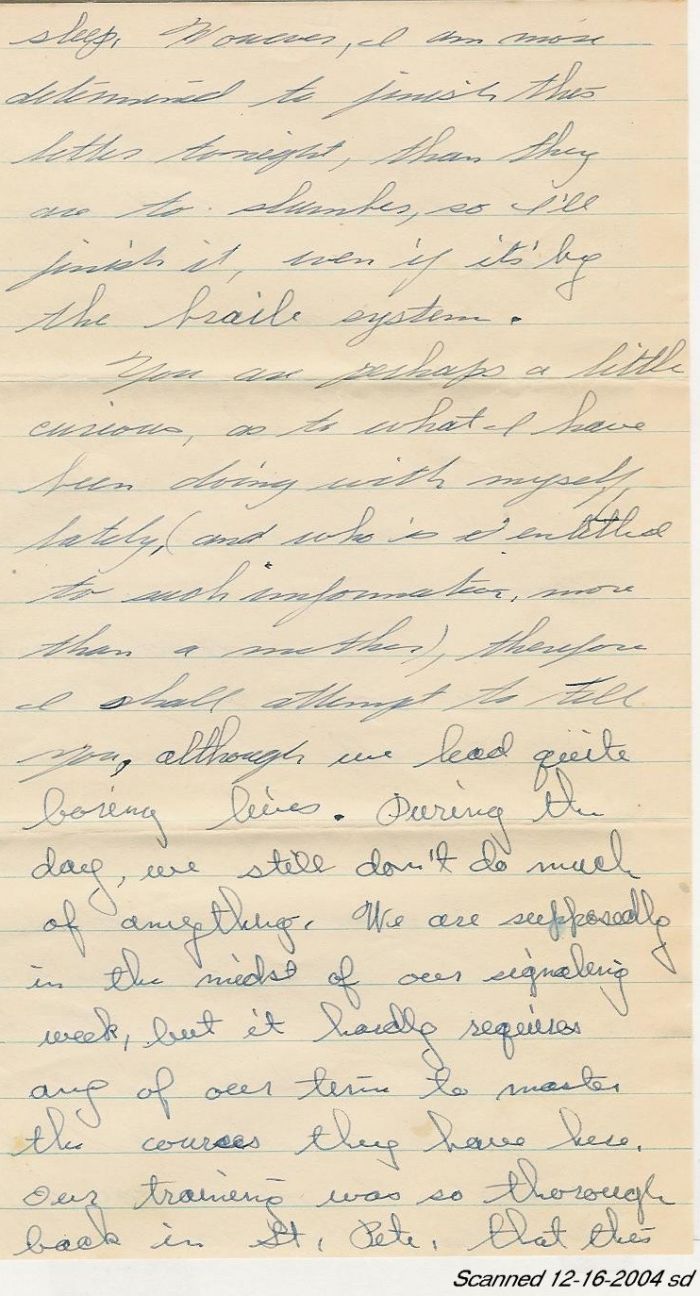 sleep. However, I am more
determined to finish this
letter tonight, than they
are to slumber, so I'll
finish it, even if it's by
the braile system.
You are perhaps a little
curious, as to what I have
been doing with myself
lately, (and who is entitled
to such information, more
than a mother), therefore
I shall attempt to tell
you, although we lead quite
boring lives. During the
day, we still don't do much
of anything. We are supposedly
in the midst of our signaling
week, but it hardly requires
any of our time to master
the courses they have here.
Our training was so thorough
back in St. Pete, that this
Scanned 12-16-2004 sd